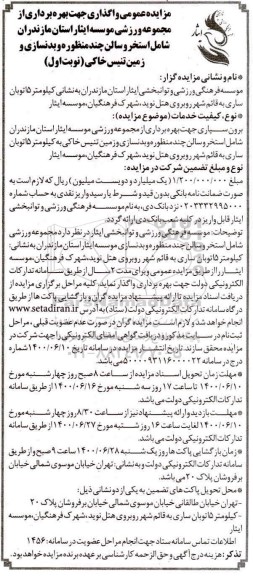 مزایده عمومی واگذاری جهت بهره برداری از
مجموعه ورزشی موسسه ایثار استان مازندران
شامل استخر و سالن چند منظوره و بدنسازی و
زمین تنیس خاکی (نوبت اول)
* نام و نشانی مزایده گزار:
موسسه فرهنگی ورزشی و توانبخشی ایثار استان مازندران به نشانی کیلومتر ۵ اتوبان
ساری به قائم شهر روبروی هتل نوید، شهرک فرهنگیان، موسسه ایثار
* نوع، کیفیت خدمات (موضوع مزایده):
برون سپاری جهت بهره برداری از مجموعه ورزشی موسسه ایثار استان مازندران
شامل استخر و سالن چند منظوره و بدنسازی و زمین تنیس خاکی به کیلومتر ۵ اتوبان
ساری به قائم شهر روبروی هتل نوید، شهرک فرهنگیان، موسسه ایثار
نوع و مبلغ تضمین شرکت در مزایده:
مبلغ ۱/۲۰۰/۰۰۰/۰۰۰ (یک میلیارد و دویست میلیون) ریال که لازم است به
صورت ضمانت نامه بانکی بدون قید و شرط یا رسید واریز نقدی به حساب شماره
نزد بانک دی به نام موسسه فرهنگی ورزشی و توانبخشی
ایثار قابل واریز در کلیه شعب بانک دی ارائه گردد.
توضیحات: موسسه فرهنگی ورزشی و توانبخشی ایثار در نظر دارد مجموعه ورزشی
شامل استخر و سالن چند منظوره و بدنسازی موسسه ایثار استان مازندران به نشانی:
کیلومتر ۵ اتوبان ساری به قائم شهر روبروی هتل نوید، شهرک فرهنگیان، موسسه
ایثار را از طریق مزایده عمومی و برای مدت ۲ سال از طریق سامانه تدارکات
الکترونیکی دولت جهت بهره برداری واگذار نماید. کلیه مراحل برگزاری مزایده از
دریافت اسناد مزایده تا ارائه پیشنهاد مزایده گران و بازگشایی پاکت ها از طریق
درگاه سامانه تدارکات الکترونیکی دولت (ستاد) به آدرس www.setadiran.ir
انجام خواهد شد و لازم است مزایده گران در صورت عدم عضویت قبلی، مراحل
ثبت نام در سایت مذکور و دریافت گواهی امضای الکترونیکی را جهت شرکت در
مزایده محقق سازند. تاریخ انتشار مزایده در سامانه تاریخ ۱۴۰۰/۰۶/۱۰ شماره
مزایده در سامانه می باشد.
* مهلت زمان تحویل اسناد مزایده از ساعت ۸ صبح روز چهارشنبه مورخ
۱۴۰۰/۰۶/۱۰ تا ساعت ۱۷ روز سه شنبه مورخ ۱۴۰۰/۰۶/۱۶ از طریق سامانه
تدارکات الکترونیکی دولت می باشد.
* مهلت بازدید و ارائه پیشنهاد نیز از ساعت ۸/۳۰ روز چهارشنبه مورخ
۱۴۰۰/۰۶/۱۰ لغایت ساعت ۱۶ روز شنبه مورخ ۱۴۰۰/۰۶/۲۷ از طریق سامانه
تدارکات الکترونیکی دولت می باشد.
* زمان بازگشایی پاکت ها روز یک شنبه ۱۴۰۰/۰۶/۲۸ ساعت ۹ صبح و از طریق
سامانه تدارکات الکترونیکی دولت و به نشانی: تهران خیابان موسوی شمالی خیابان
برفروشان پلاک ۲۰ می باشد.
* محل تحویل پاکت های تضمین به یکی از دو نشانی ذیل:
- تهران خیابان طالقانی خیابان موسوی شمالی خیابان برفروشان پلاک ۲۰
- کیلومتر ۵ اتوبان ساری به قائم شهر روبروی هتل نوید، شهرک فرهنگیان، موسسه
ایثار
اطلاعات تماس سامانه ستاد جهت انجام مراحل عضویت در سامانه: ۱۴۵۶
تذکر: هزینه درج آگهی و حق الزحمه کارشناسی بر عهده برنده مزایده خواهد بود.